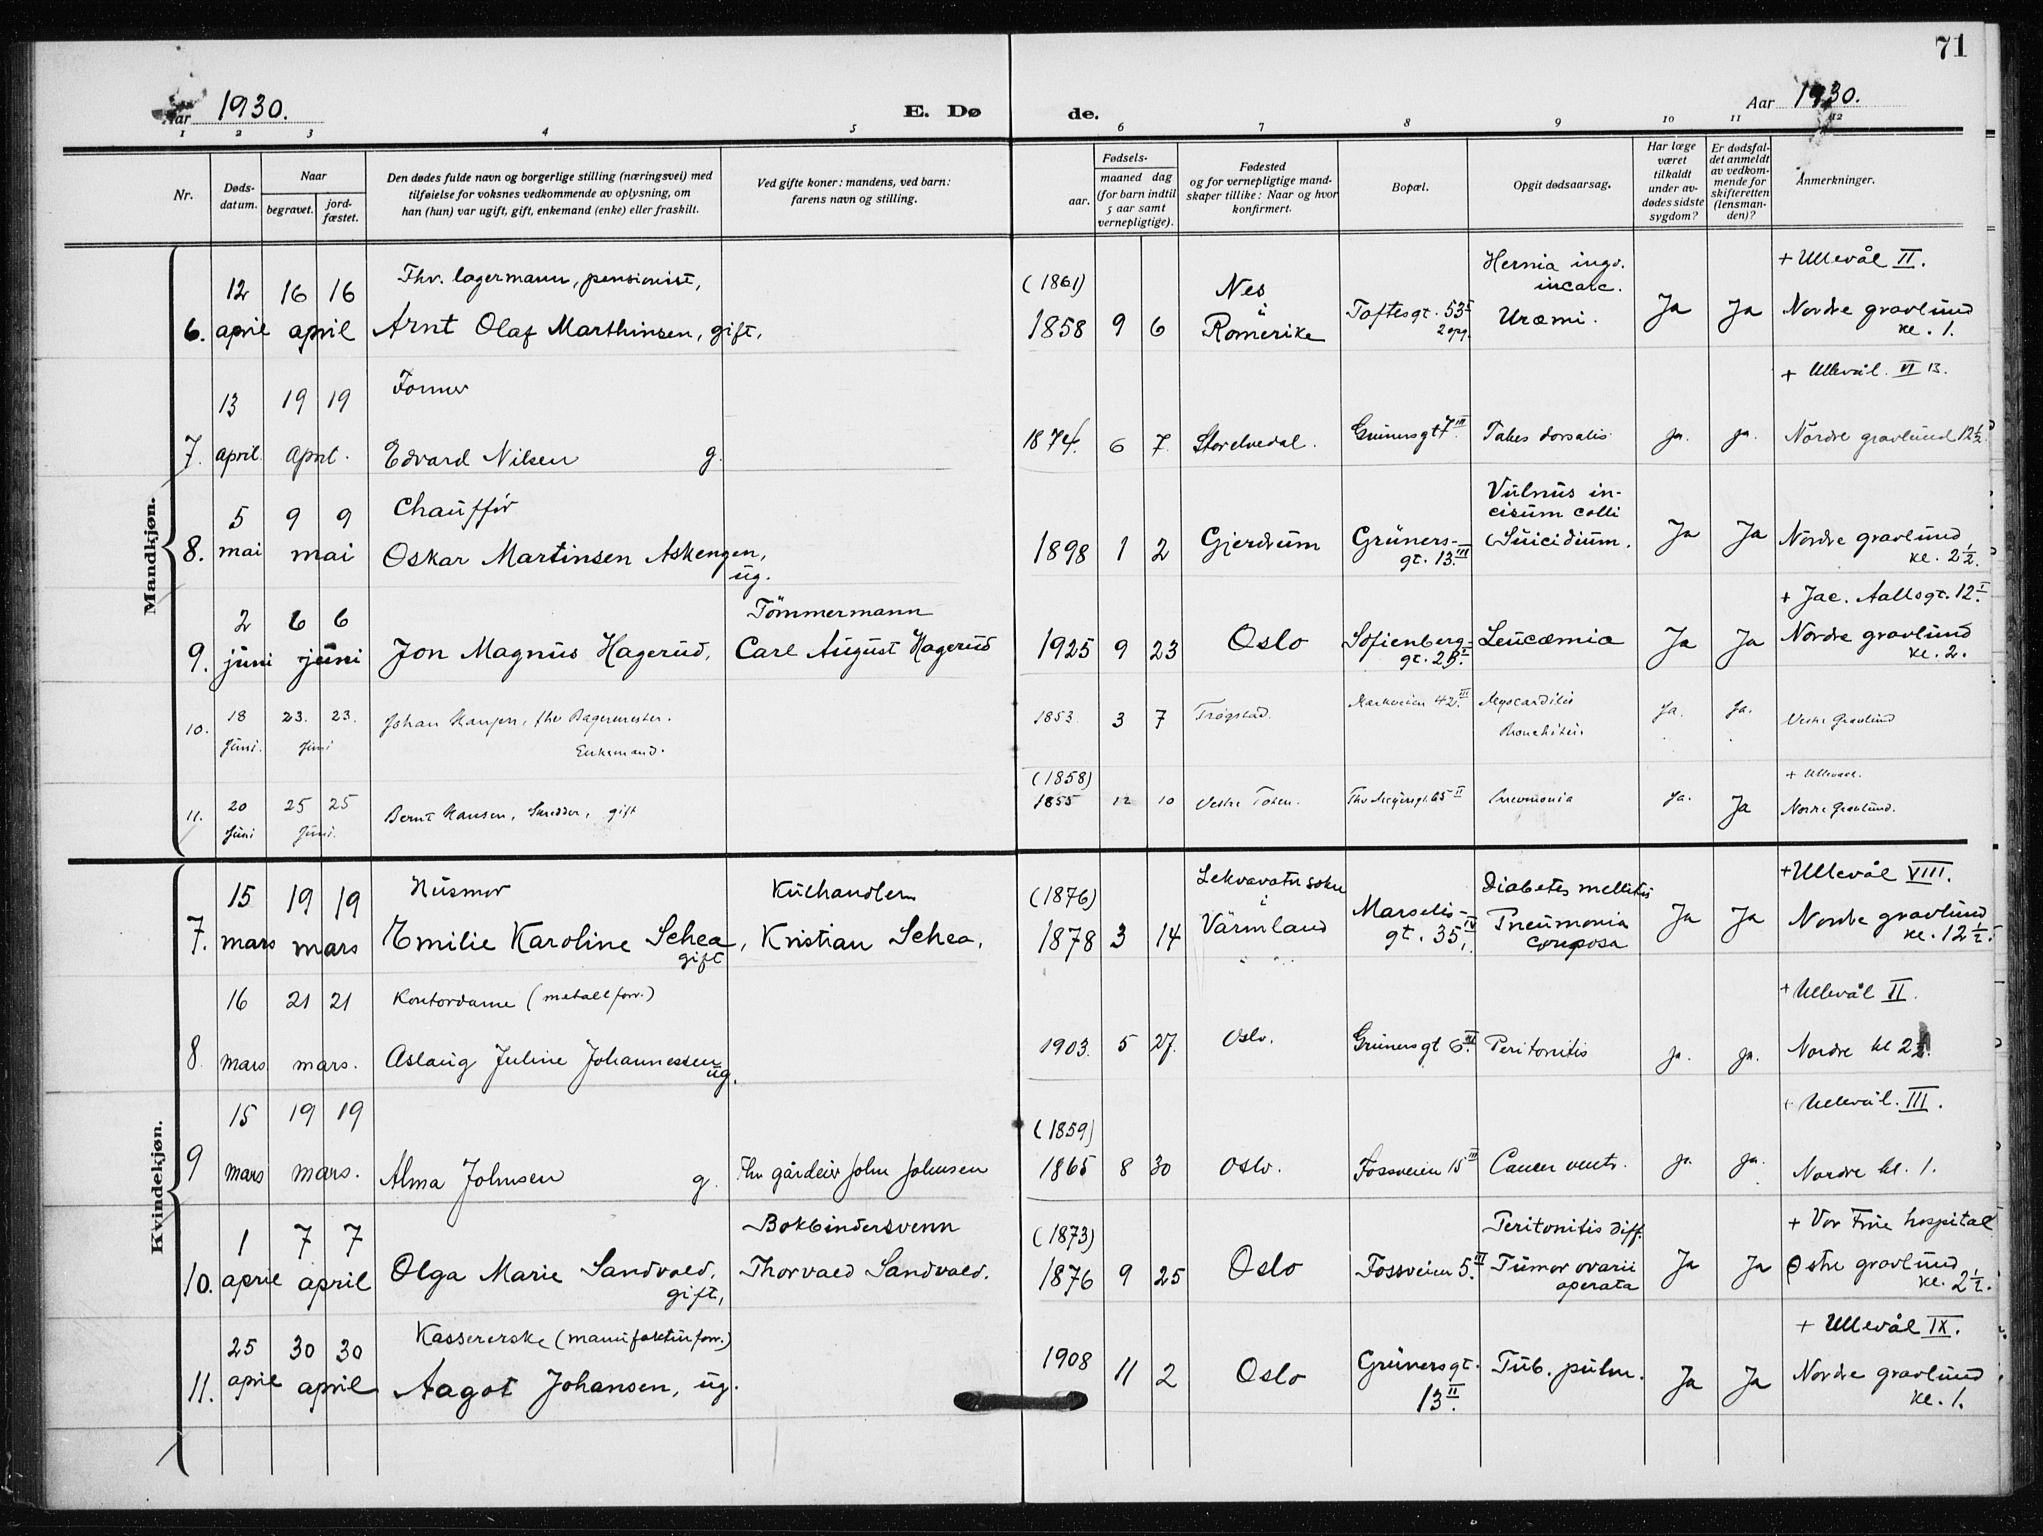 71
Aar 1930.
E. Døde.
Aar 1930.
1 2 3 4 5 6 7 8 9 10 11 12
Nr.
Døds-
datum.
Naar
begravet.
jord-
fæstet.
Den dødes fulde navn og borgerlige stilling (næringsvei) med
tilføielse for voksnes vedkommende av oplysning, om
han (hun) var ugift, gift, enkemand (enke) eller fraskilt.
Ved gifte koner: mandens, ved barn:
farens navn og stilling.
Fødsels-
aar.
maaned dag
(for barn indtil
5 aar samt
vernepligtige).
Fødested
og for vernepligtige mand-
skaper tillike: Naar og hvor
konfirmert.
Bopæl.
Opgit dødsaarsag.
Har læge
været
tilkaldt
under av-
dødes sidste
sygdom?
Er dødsfal-
det anmeldt
av vedkom-
mende for
skifteretten
(lensman-
den)?
Anmerkninger.
Mandkjøn.
6. 12 april 16 16 april
Fhv. lagermann, pensionist,
Arnt Olaf Marthinsen, gift.
(1861)
1858 9 6
Nes
i
Romerike
Toftesgt. 53
2 opg.
Hernia ingv.
incarc.
Uræmi.
Ja Ja
+ Ullevål II.
Nordre gravlund
kl. 1.
7. 13 april. 19 19 april.
Former
Edvard Nilsen g.
1874. 6 7.
Storelvedal.
Grünersgt 7 III
Tabes dorsalis
ja. ja.
+ Ullevål. VI 13.
Nordre gravlund 12 1/2.
8. 5 mai 9 9 mai
Chauffør
Oskar Martinsen Askengen,
ug.
1898 1 2
Gjerdrum
Grüners-
gt. 13. III
Vulnus in-
cisum colli
(Suicidium.
Ja Ja
Nordre gravlund
kl. 2 1/2.
9. 2 juni 6 6 juni
Jon Magnus Hagerud,
Tömmermann
Carl August Hagerud
1925 9 23
Oslo
Sofienberg-
gt. 25. II
Leucæmia
Ja Ja
+ Jac. Aallsgt. 12. I
Nordre gravlund
kl. 2.
10. 18 Juni. 23. 23. Juni
Johan, fhv Bagermester.
Enkemand.
1853. 3 7
Trøgstad.
Markveien 42. III
Myocarditis
Bronchitis.
Ja. Ja.
Vestre Gravlund
11. 20 Juni 25 25 Juni.
Bernt Hansen, Skrædder, gift
(1858)
1855 12 10
Vestre Toten.
Thv Meyersgt. 65 II
Pneumonia
Ja. Ja
+ Ullevaal.
Nordre Gravlund.
Kvindekjøn.
7. 15 mars 19 19 mars
Husmor
Emilie Karoline Schea,
gift
Kulhandler
Kristian Schea.
(1876)
1878 3 14
i
Värmland
Marselis-
gt. 35. IV
Diabetes mellitus
Pneumonia
Ja Ja
+ Ullevål VIII.
Nordre gravlund
kl. 12 1/2.
8. 16 mars 21 21 mars.
Kontordame (metallforr.)
Aslaug Juline Johannessen
ug.
1903. 5 27.
Oslo.
Grünersgt 6. III
Peritonitis
ja. ja.
+ Ullevål II.
Nordre kl 2 1/2.
9 15 mars 19 19 mars.
Alma Johnsen g.
Fhv. gårdeier John Johnsen
(1859)
1865 8 30
Oslo.
Fossveien 15 III
Cancer ventr.
ja. ja.
+ Ullevål. III.
Nordre kl. 1.
10. 1 april 7 7 april
Olga Marie Sandvold,
gift,
Bokbindersvenn
Thorvald Sandvold.
(1873)
1876 9 25
Oslo
Fossveien 5. III
Peritonitis diff.
Tumor ovarii
operata
Ja Ja
+ Vor Frue hospital
Østre gravlund
kl. 2 1/2.
11. 25 april 30 30 april
Kassererske (manufakturforr.)
Aagot Johansen, ug.
1908 11 2
Oslo
Grünersgt.
13. II
Tub. pulm.
Ja Ja
+ Ullevål IX.
Nordre gravlund
kl. 1.